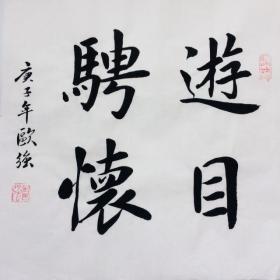 遊目
騁懷
庚子年歐強